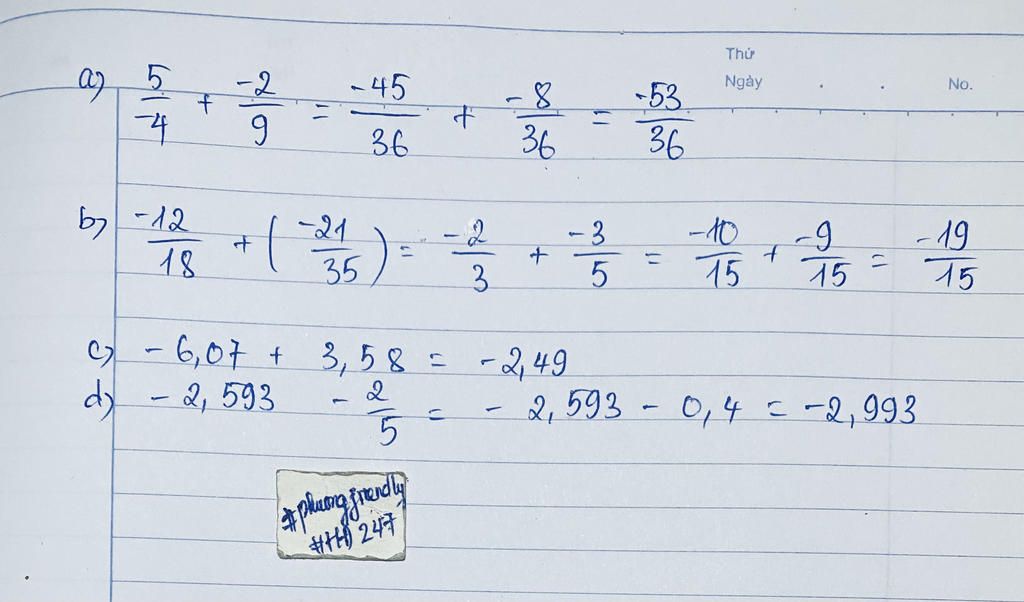 Thứ
Ngày . . No.
a) 5/-4 + -2/9 = -45/36 + -8/36 = -53/36
b) -12/18 + (-21/35) = -2/3 + -3/5 = -10/15 + -9/15 = -19/15
c) - 6,07 + 3,58 = -2,49
d) - 2,593 - 2/5 = - 2,593 - 0,4 = -2,993
#phuongfriendly
#HĐ247